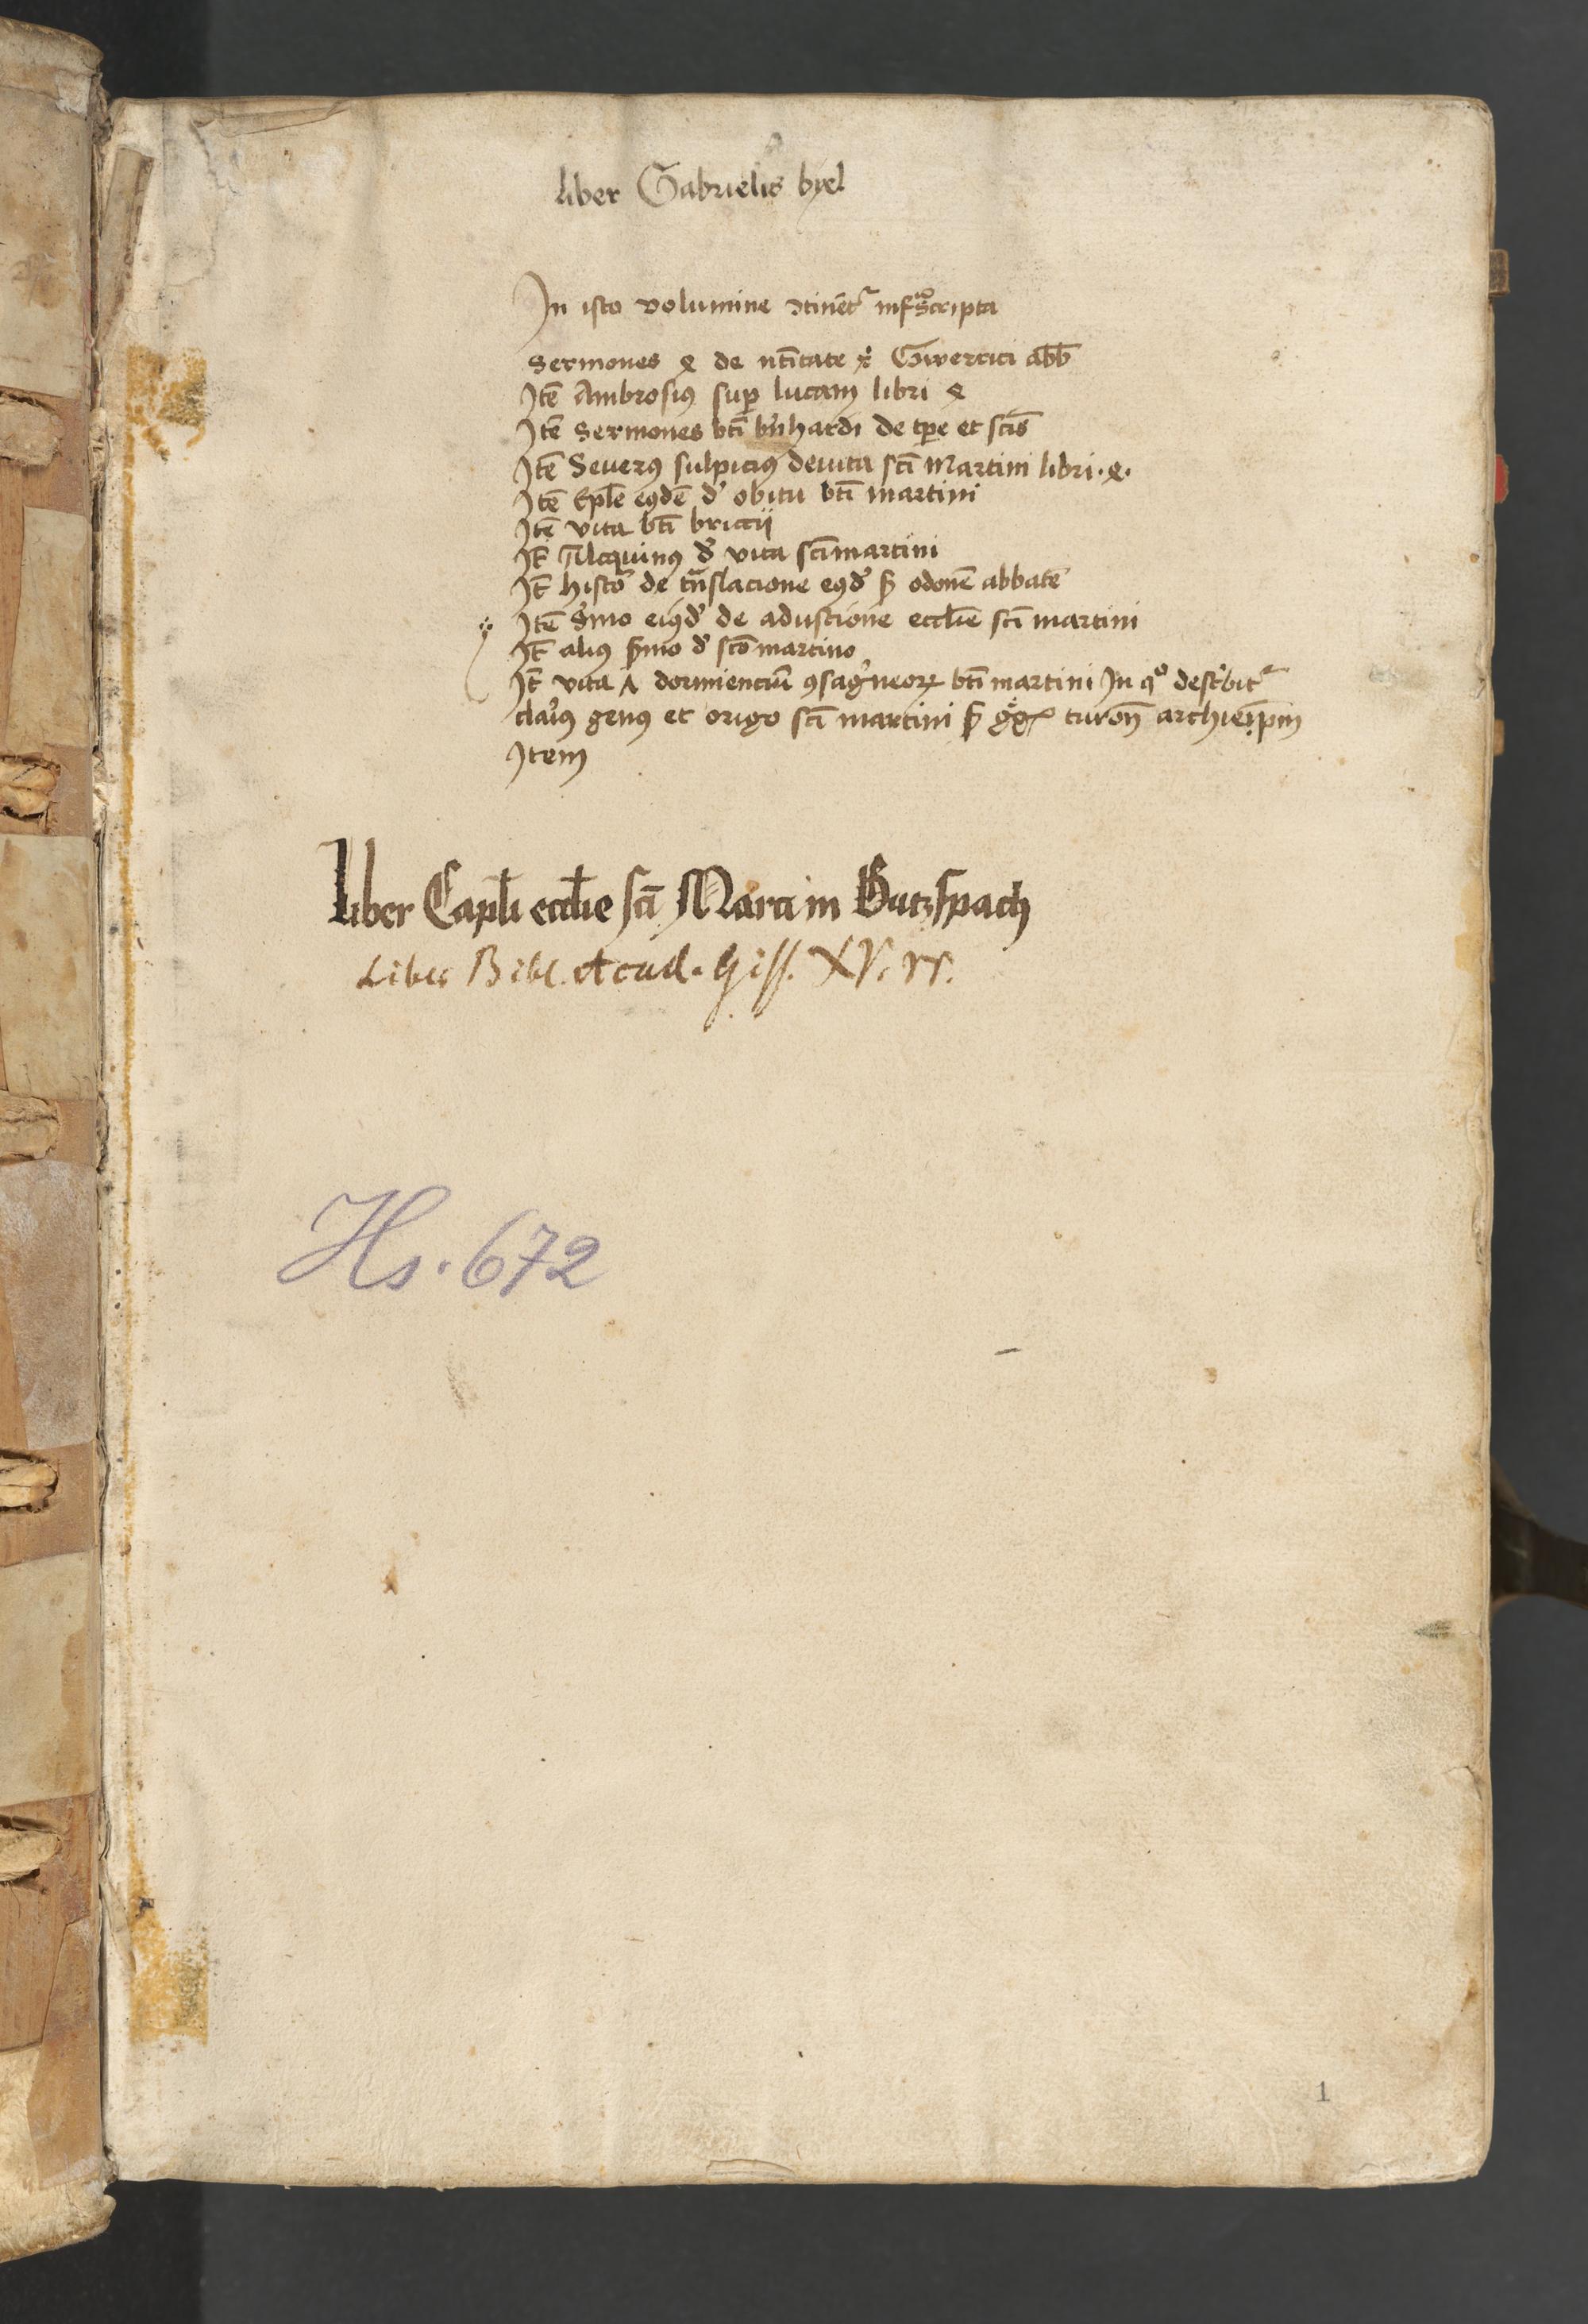 liber Gabrielis byel
In isto volumine ↄtinēt᷑ infͣscripta
Sermones 4 de nt̄itate x̄ Gwerrici abb̄
Itē Ambrosiꝯ suꝑ lucam libri 4
Itē Sermones bt̄i b̓nhardi de tꝑe et sc̄is
Itē Seuerꝯ sulpiciꝯ de vita sc̄i Martini libri .4.
Itē Ep̄le eꝯdē d̓ obitu bt̄i martini
Itē vita bt̄i briccij
It̄ Alcquinꝯ d̓ vita sc̄i martini
It̄ histo᷑ de tn̄slacione eꝯd̓ ꝑ odonē abbatē
Itē S̓mo eiꝯd̓ de adustione eccl̄ie sc̄i martini
It̄ aliꝯ s̓mo d̓ sc̄o martino
It̄ vita ʌ dormienciū ꝯsag̓neoꝝ bt̄i martini In qͦ desc͛bit᷑
clariꝯ genꝯ et origo sc̄i martini ꝑ turon̄ archiep̄m
Item
Liber Capl̄i eccl̄ie sc̄i Marci in Butzspach
Liber Bibl. Acad. Giss.
Hs. 672
1